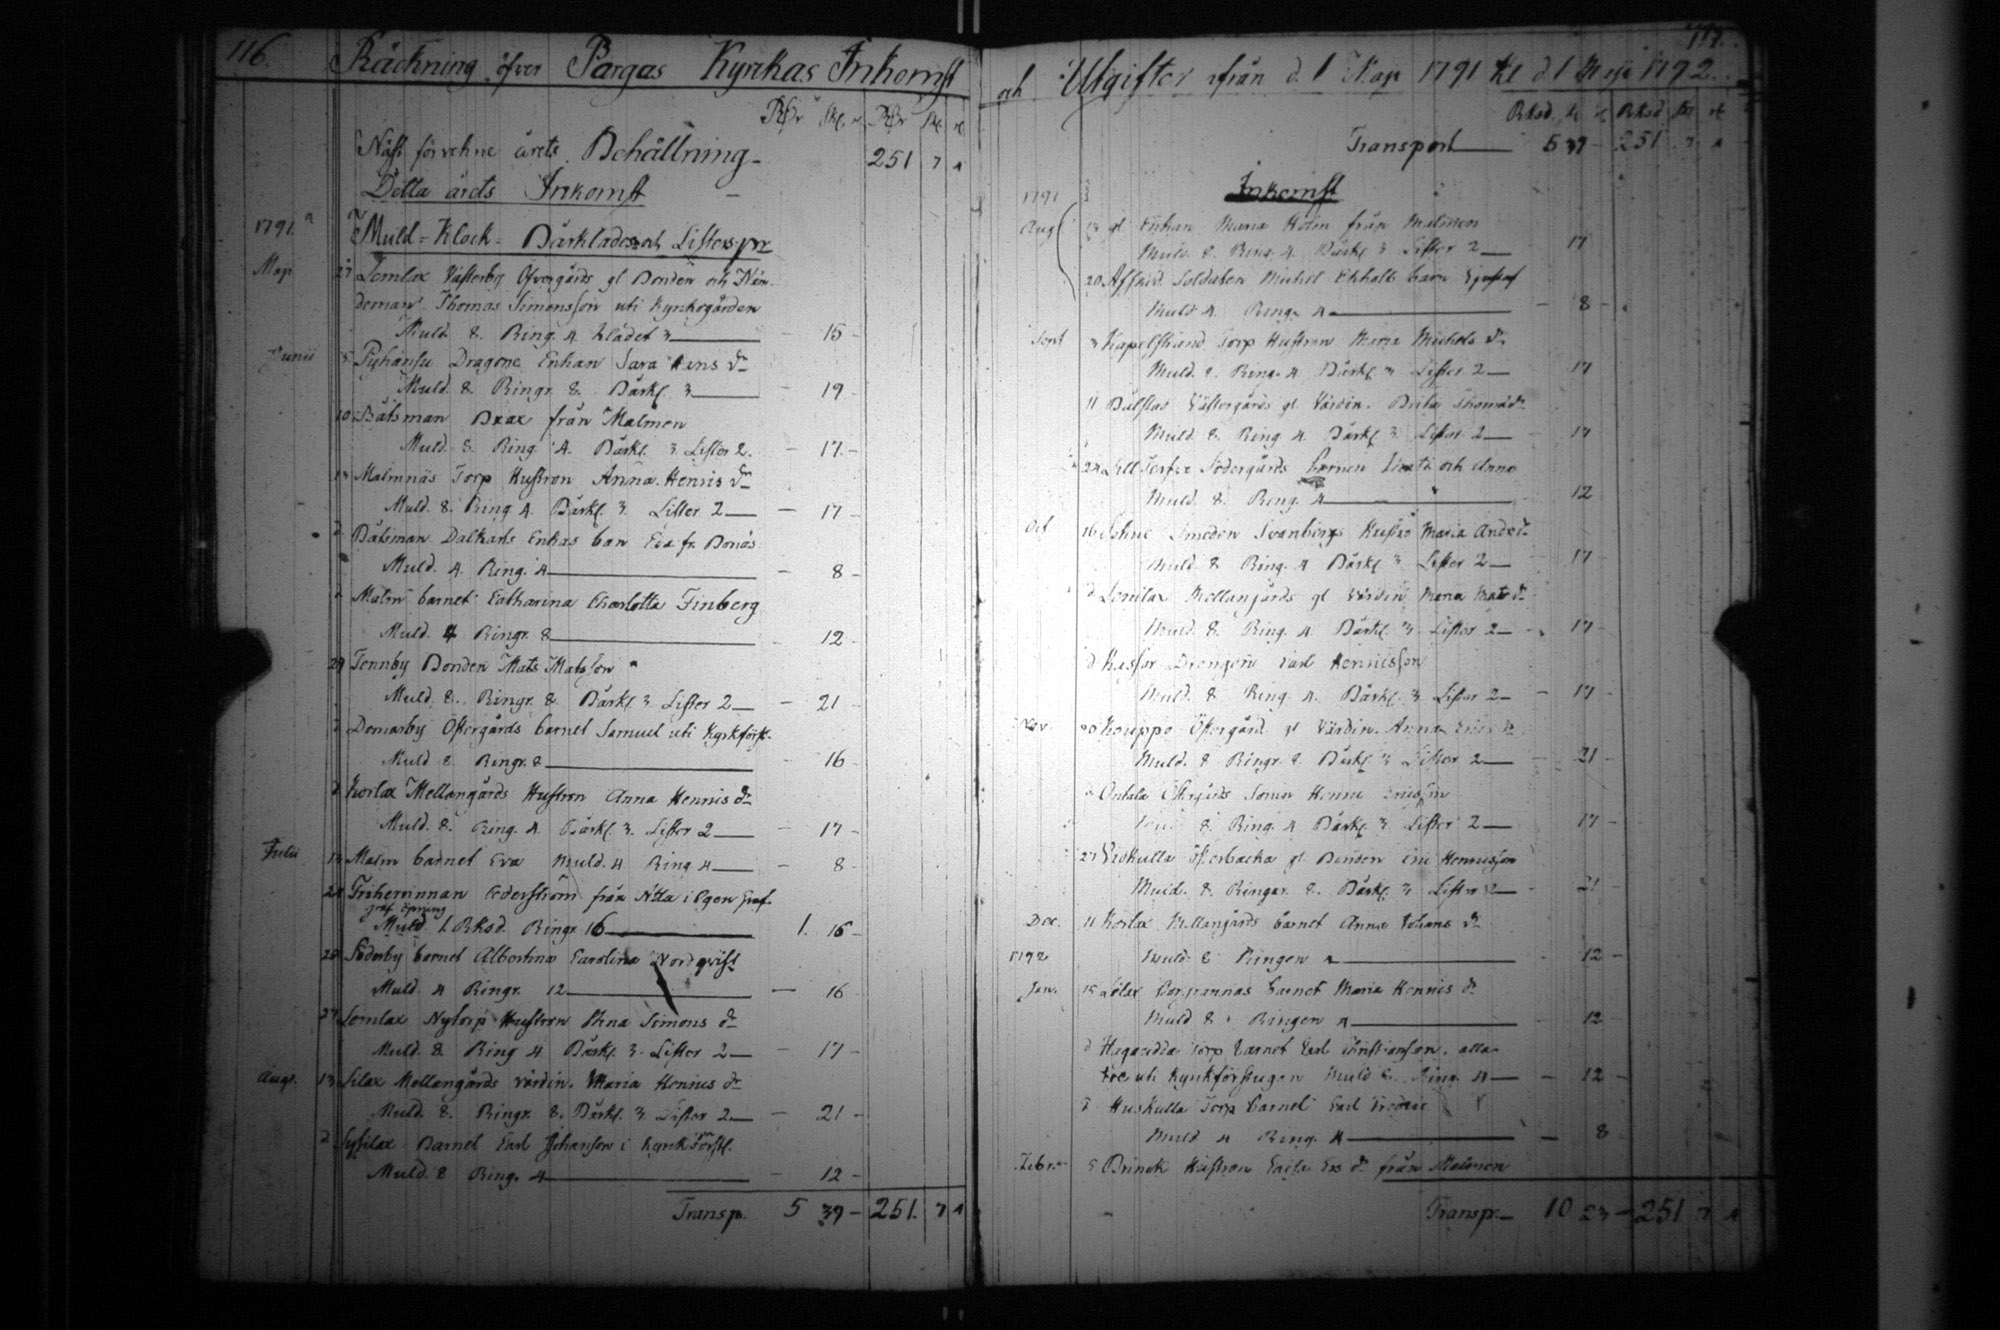 116.
Räckning öfver Pargas Kyrckas Inkomst
Rdr Sk. r. Rdr Sk. r.
Näst förvekne årets Behållning 251 7 4
Detta årets Inkomst
1791.
Muld- Klock- Bårklädes och Lifters pr
Maji 27 Lemlax Västerby Öfvergårds gl Bonden och Näm-
deman Thomas Simonsson uti Kyrkogården
Muld. 8. Ring. 4. klädet 3 — 15
Junii 5 Pyhänsu Dragone Enkan Sara Hens dr
Muld. 8. Ringr. 8. Bårkl. 3 — 19
10 Båtsman Brax från Malmen
Muld. 8. Ring. 4. Bårkl. 3. Lifter 2. — 17.
13 Malmnäs Torp Hustron Anna Hennis dr
Muld. 8. Ring 4. Bårkl. 3. Lifter 2 — 17
d Båtsman Dalkarls Enkas barn Eva fr. Bonäs
Muld. 4. Ring. 4 — 8
d Malm barnet Catharina Charlotta Finberg
Muld. 4 Ringr. 8 — 12
29 Tennby Bonden Mats Matsson
Muld. 8. Ringr. 8. Bårkl. 3. Lifter 2 — 21
d Domarby Östergårds barnet Samuel uti Kyrkförst.
Muld 8. Ringr. 8 — 16
d Korlax Mellangårds Hustron Anna Hennis dr
Muld. 8. Ring. 4. Bårkl. 3. Lifter 2 — 17
Julii 13 Malm barnet Eva Muld. 4. Ring. 4 — 8
24 Friherrinnan Cederström från Nätta i Egen graf.
graf öpning
Muld. 1 Rksd. Ringr. 16 1. 16
28 Söderby barnet Albertina Carolina Nordqvist
Muld. 4 Ringr. 12 — 16
27 Lemlax Nytorp Hustron Stina Simons dr
Muld. 8. Ring 4. Bårkl. 3. Lifter 2 — 17
Augt. 13 Silax Mellangårds värdin. Maria Henius dr
Muld. 8. Ringr. 8. Bårkl. 3 Lifter 2 — 21
d Sysilax Barnet Carl Johanson i Kyrk Förstl.
Muld. 8 Ring. 4 — 12
Transp. 5 39 — 251. 7 4
117.
och Utgifter ifrån d. 1 Maji 1791 til d 1 Maji 1792.
Rksd. sk r Rksd sk r
Transport 5 39 — 251 7 4
1791 Inkomst
Aug 13 gl Enkan Maria Holm från Malmen
Muld. 8. Ring. 4. Bårkl 3 Lifter 2 — 17
20 Affsked. Soldaten Michel Ekholls barn Gustaf
Muld 4. Ring. 4 — 8
Sept 3 Kapellstrand Torp Hustron Maria Michels dr
Muld. 8. Ring. 4 Bårkl 3 Lifter 2 — 17
11 Västergårds gl Värdin. Brita Thomædr
Muld. 8. Ring 4. Bårkl 3 Lifter 2 — 17
24 Lill Södergårds barnen och Anna
Muld. 8. Ring. 4 — 12
Oct 16 Smeden Svanbergs Hustro Maria Andersdr
Muld. 8 Ring. 4 Bårkl 3 Lifter 2 — 17
d Lemlax Mellangårds gl Värdin Maria Matsdr
Muld. 8. Ring. 4. Bårkl. 3. Lifter 2 — 17
d Kassar Drengen Carl Hennisson
Muld. 8 Ring. 4. Bårkl. 3 Lifter 2 — 17
Nov. 20 Kouppo Östergård gl Värdin. Anna Erics dr
Muld. 8 Ringr. 8 Bårkl 3 Lifter 2 — 21
d Ontala Östergårds Sonen Henric Ericsson
Muld. 8. Ring. 4. Bårkl 3 Lifter 2 — 17
27 Vidkulla Österbacka gl Bonden Eric Hennisson
Muld. 8. Ringar. 8. Bårkl. 3 Lifter 2 — 21
Dec. 11 Korlax Mellangårds barnet Anna Johans dr
1792 Muld. 8 Ringen 4 — 12
Jan. 15 barnet Maria Hennis dr
Muld 8. Ringen 4 — 12
d Torp barnet Carl Christianson.
uti Kyrkförstugan Muld 8. Ring. 4 — 12
d Huskulla Torp barnet Carl Fredric
Muld 4 Ring. 4 — 8
Febr. 5 Brinck Hustron Caisa Ers dr från Malmen
Transp. 10 23 — 251 7 4